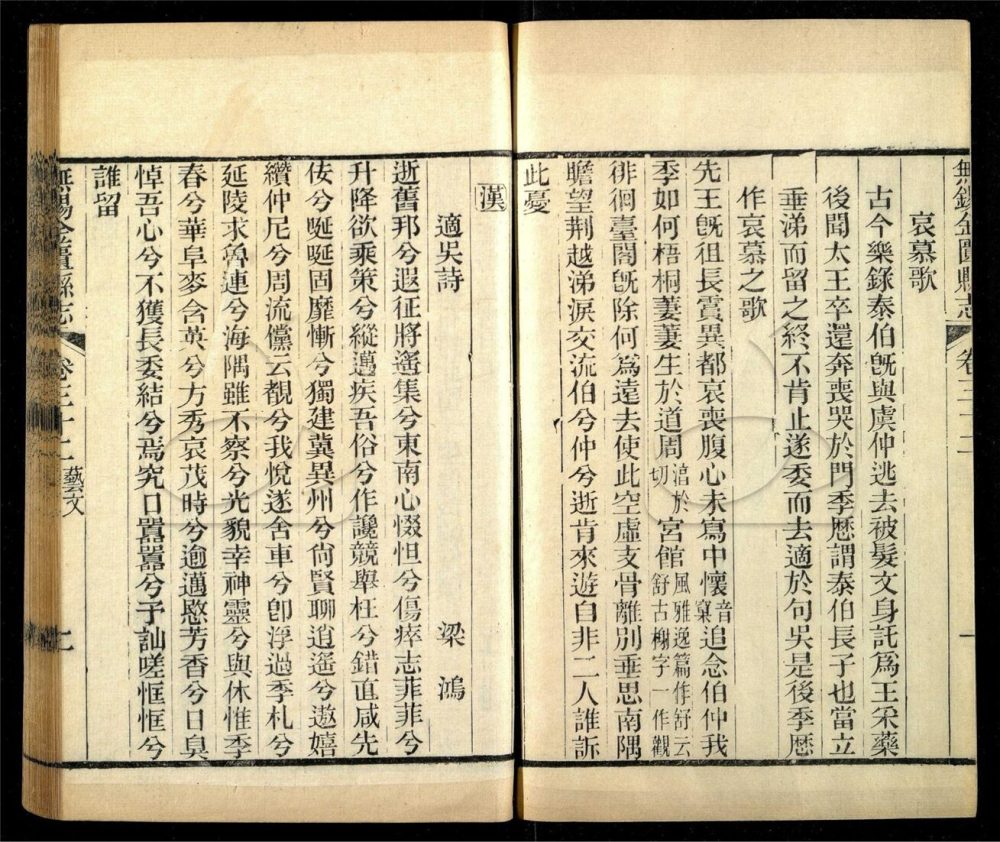 無錫金匱縣志 卷三十二 一
哀慕歌
古今樂錄泰伯旣與虞仲逃去被髮文身託爲王采藥
後聞太王卒還奔喪哭於門季歷謂泰伯長子也當立
垂涕而留之終不肯止遂委而去適於句吳是後季歷
作哀慕之歌
先王旣徂長霣異都哀喪腹心未寫中懷音裏追念伯仲我
季如何梧桐萋萋生於道周㳷於切宮館風雅逸篇作舒云舒古榭字一作觀
徘徊臺閣旣除何爲遠去使此空虛支骨離別垂思南隅
瞻望荆越涕淚交流伯兮仲兮逝肯來遊自非二人誰訴
此憂
漢
適吳詩 梁鴻
逝舊邦兮遐征將遙集兮東南心惙怛兮傷瘁志菲菲兮
升降欲乘策兮縱邁疾吾俗兮作讒競舉枉兮錯直咸先
佞兮唌唌固靡慚兮獨建冀異州兮尙賢聊逍遙兮遨嬉
纘仲尼兮周流儻云覩兮我悅遂舍車兮卽浮過季札兮
延陵求魯連兮海隅雖不察兮光貌幸神靈兮與休惟季
春兮華阜麥含英兮方秀哀茂時兮逾邁愍芳香兮日臭
悼吾心兮不獲長委結兮焉究口囂囂兮予訕嗟恇恇兮
誰留
無錫金匱縣志 卷三十二 藝文